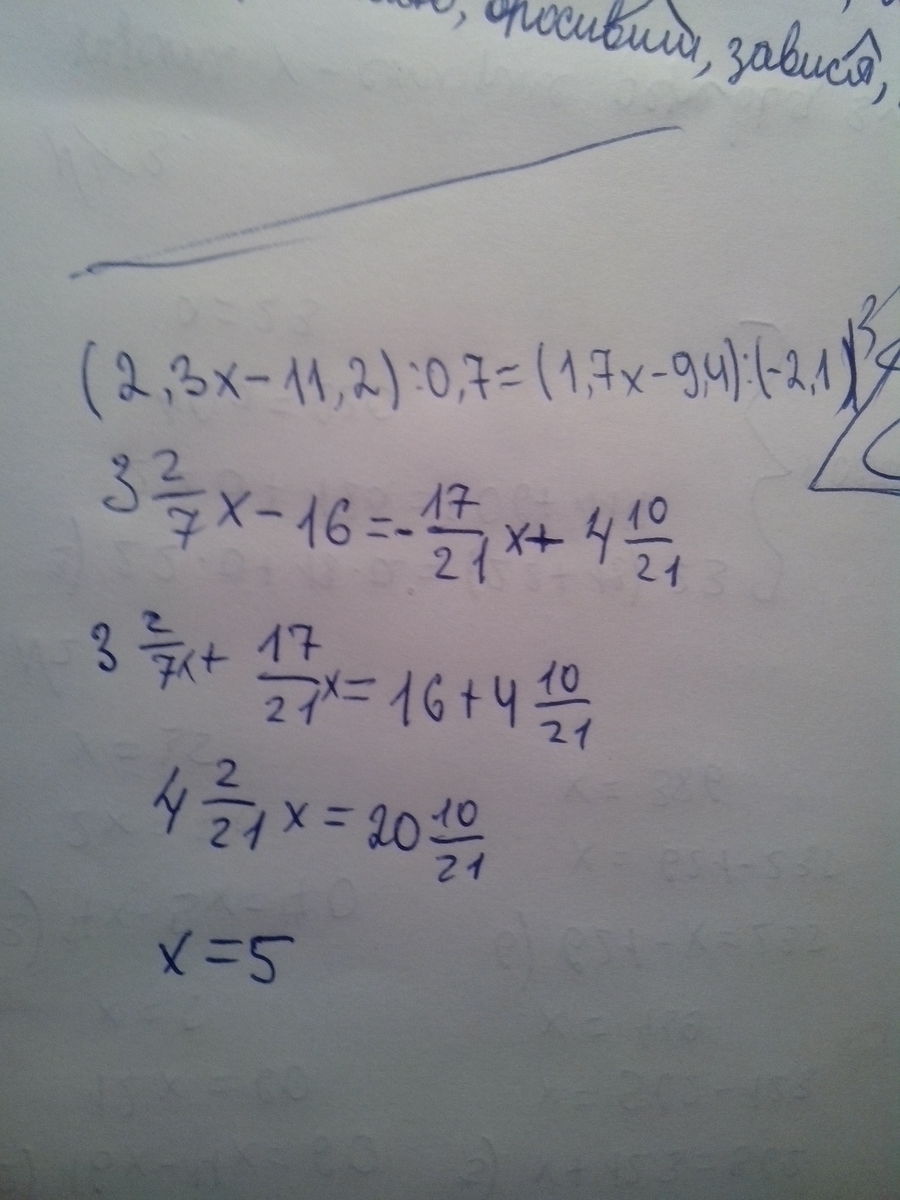 , бросивши, завися,
(2,3x-11,2):0,7=(1,7x-9,4):(-2,1)
3 2/7 x - 16 = - 17/21 x + 4 10/21
3 2/7 x + 17/21 x = 16 + 4 10/21
4 2/21 x = 20 10/21
x = 5